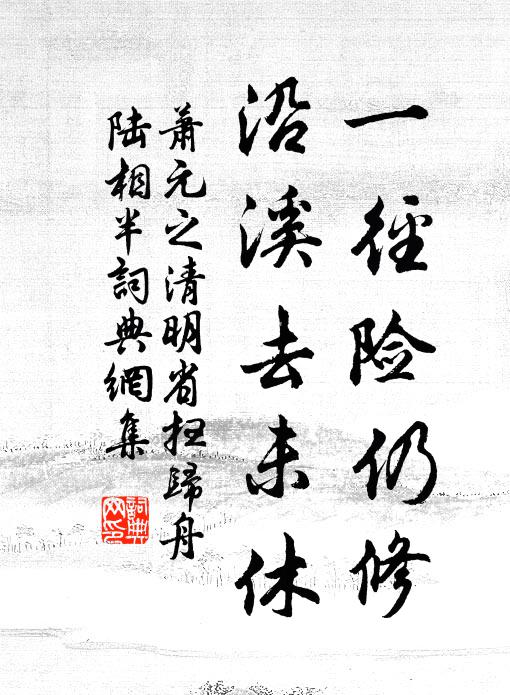 一徑险仍修
沿溪去未休
萧元之清明省扫歸舟
陆相半詞典網集
詞典
网印